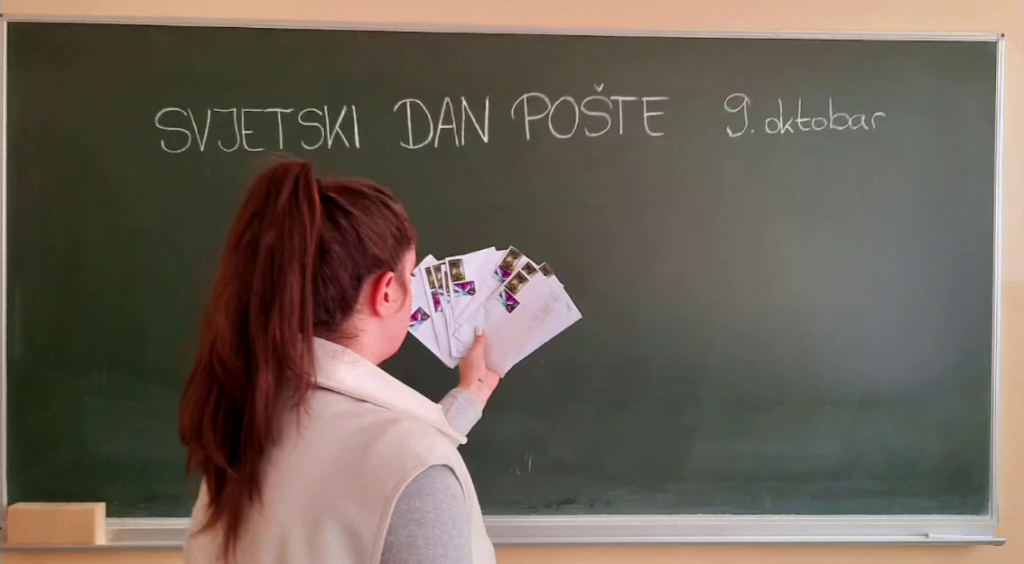 SVJETSKI DAN POŠTE 9. oktobar